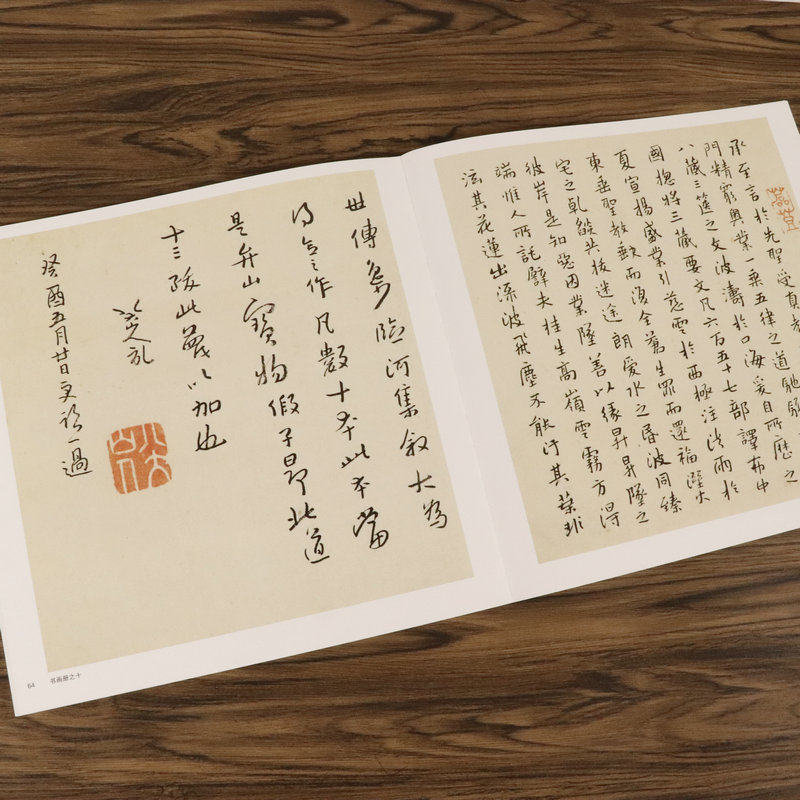 承至言於先聖受真教
門精窮奧業一乘五律之道馳驟
八藏三篋之文波濤於口海爰自所歷之
國揔將三藏要文凡六百五十七部譯布中
夏宣揚盛業引慈雲於西極注法雨於
東垂聖教缺而復全蒼生罪而還福溼火
宅之乾燄共拔迷途朗愛水之昏波同臻
彼岸是知惡因業墜善以緣昇昇墜之
端惟人所託譬夫桂生高嶺雲霧方得
泫其花蓮出淥波飛塵不能汙其葉非
世傳臨河集叙大為
得意之作凡數十本此本當
是弁山寶物假子昂北道
十三跋此蔑以加也
癸酉五月廿日又一過
64 书画册之十